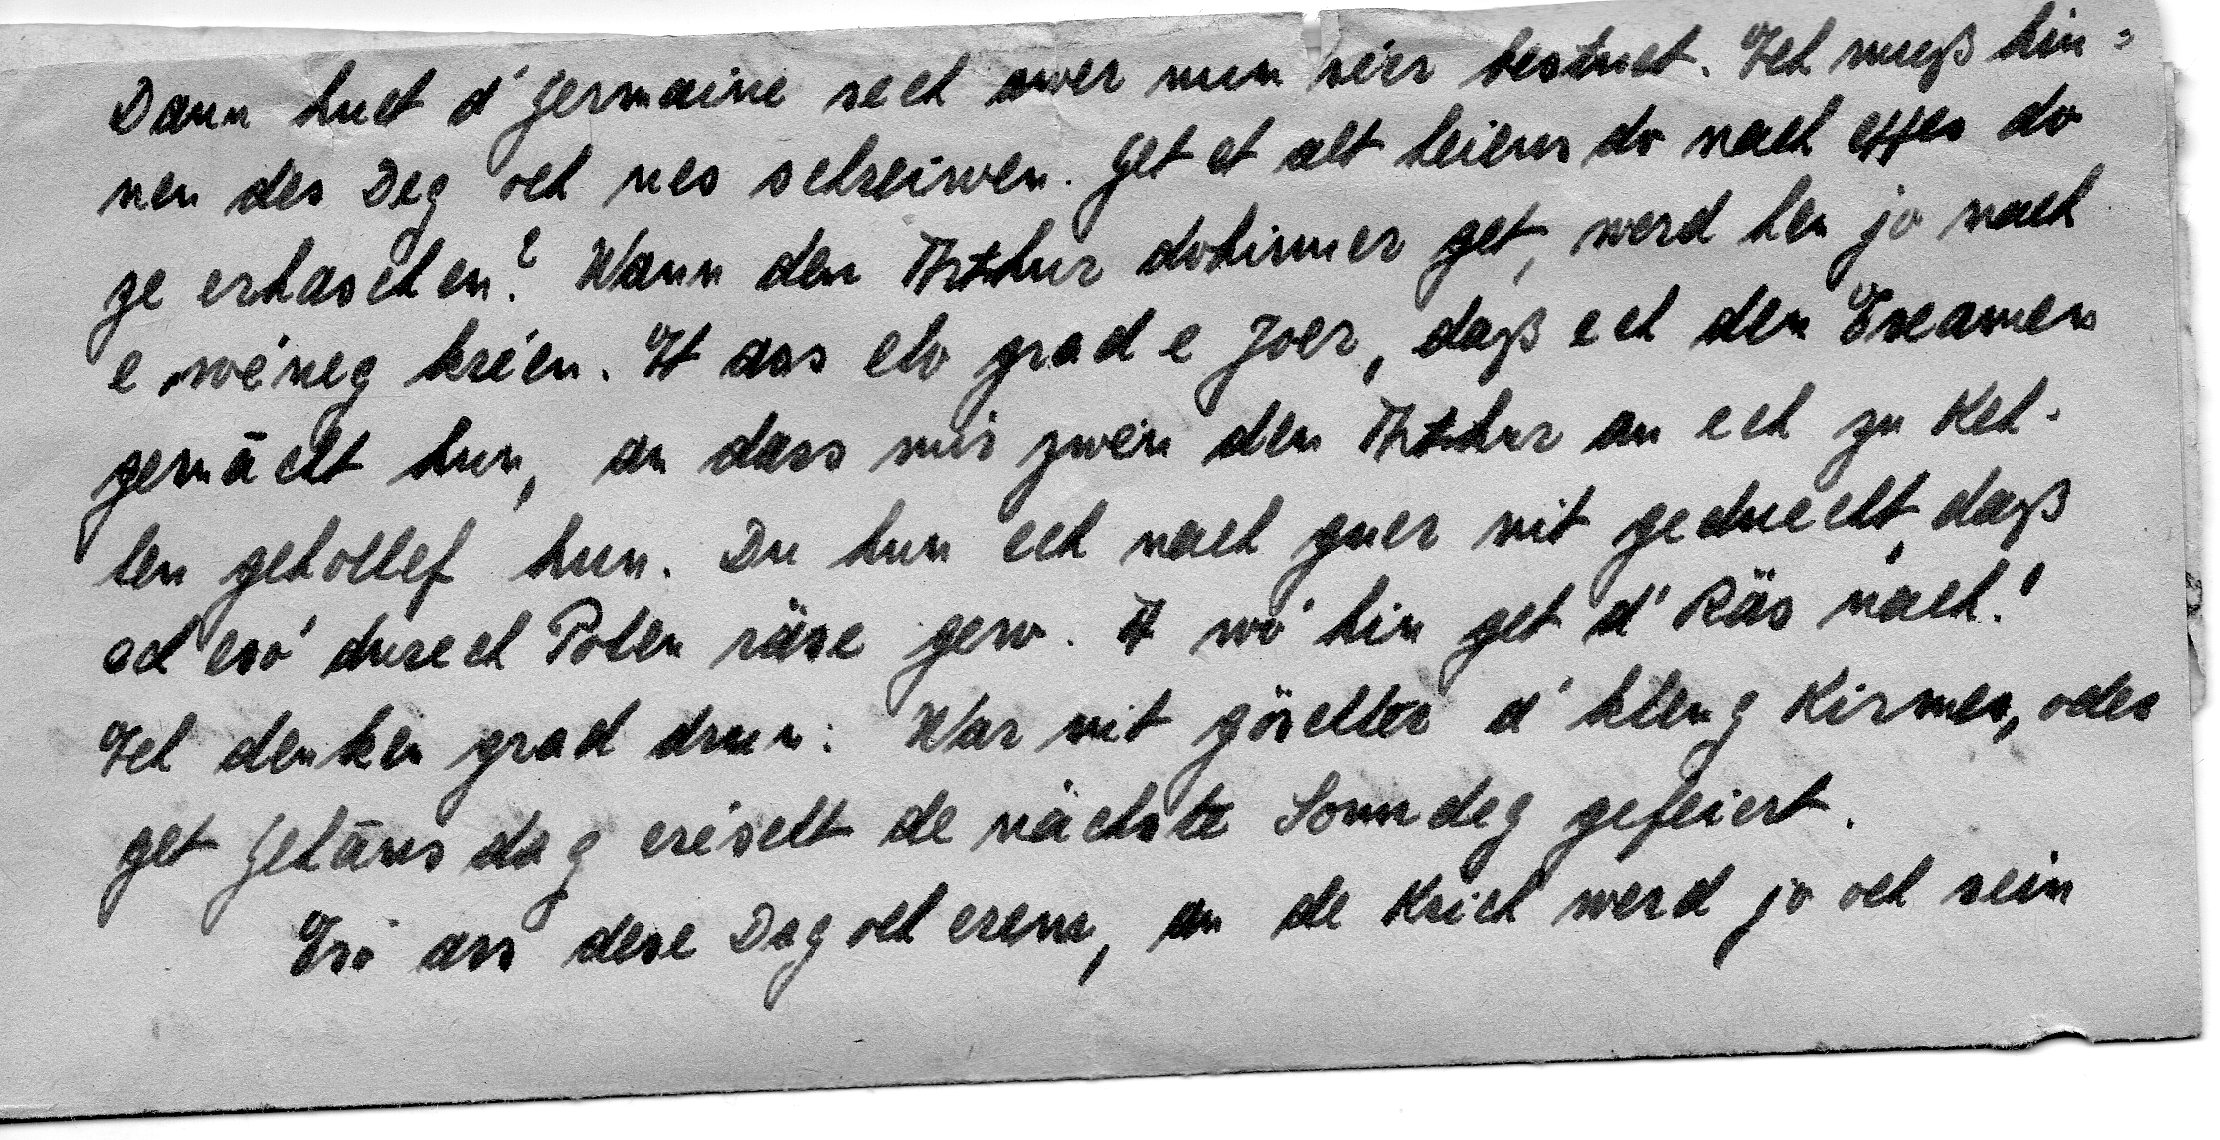 Dann huet d' Germaine sech awer nun séer bestuet. Ech muß hin=
nen des Deg och nes schreiwen. Get et alt heiens do nach eppes do
ze erhaschen? Wann den Arthur dohinner get, werd hen jo nach
e wéneg kréien. Et ass elo grad e Joer, daß ech den Examen
gemächt hun, an dass mir zwéin den Arthur an ech zu Keh-
len gehollef hun. Du hun ech nach guer nit geduecht, daß
ech esó durech Polen räse géw. A wó hin get d' Räs nach!
Ech denken grad drun: War nit gëschter d' kleng Kirmes, oder
get Gehānsdag eréischt de nächste Sonndeg gefeiert.
Esó ass dese Dag och erem, an de Krich werd jo och sein